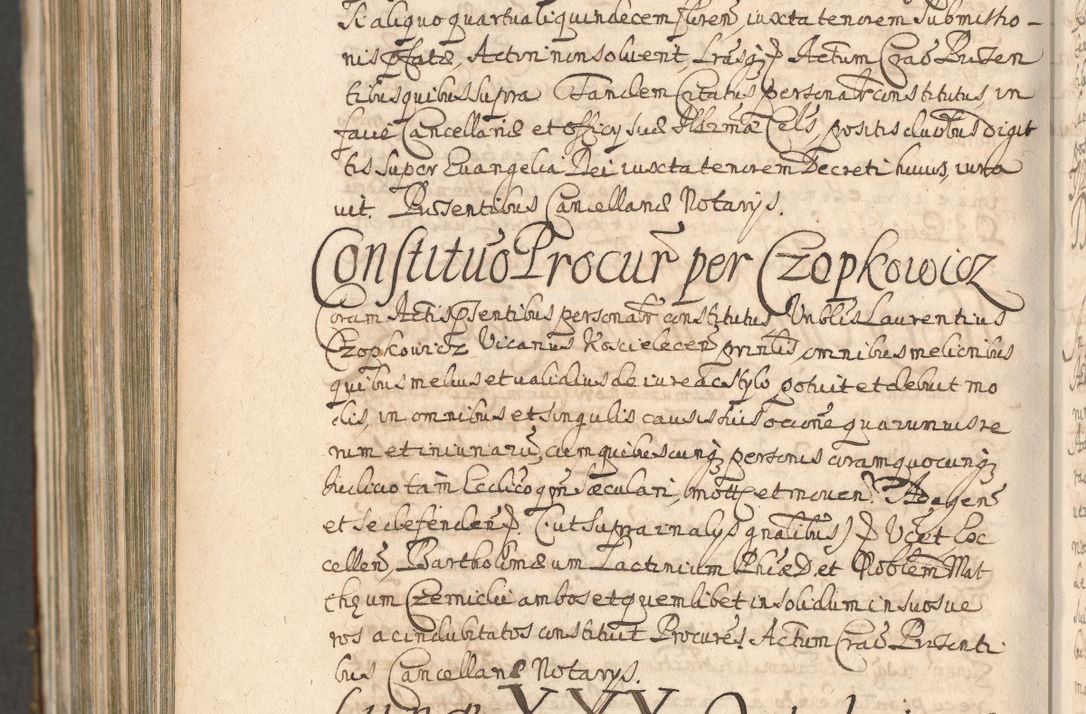 R aliquo quartuali quindecem floren̄ iuxta tenorem Submissio-
nis pfatæ, Actori non soluerit, Actum Crac̄ Præsen
tibus quibus supra Tandem Citatus personalr̄ constitutus in
facie Cancellariæ et officy suæ Illmæ Cels positis duobus digit
tis super Euangelia Dei iuxta tenorem Decreti huius, iura
uit. Præsentibus Cancellariæ Notarijs.
Constituō Procur̄ per Czopkowicz
Coram Actis pñsentibus personalr̄ constitutus Vnblis Laurentius
Czopkowicz Vicarius Koscielecen̄ prinlis, omnibus melioribus
quibus melius et validius de iure ac stylo potuit et debuit mo
dis, in omnibus et singulis causis suis occōne quarumuis re
rum et iniuriarū, cum quibuscunqz personis coram quocunqz
Iudicio tam Ecclīco qm̄ sæculari, mott et mouen Ad agen̄
et se defenden̄ (ut supra in alijs gnalibus) Vēt Coc
cellen̄, Bartholomæum Lactinium Phiæ D. et Noblem Mat
thæum Czernicki ambos et quemlibet in solidum in suos ue
ros ac indubitatos constituit Procures̄ Actum Crac̄ Præsenti
bus Cancellariæ Notarijs.
XXX